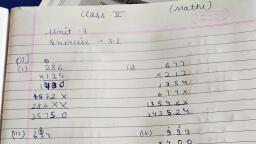 Class - V (Maths)
Unit - 3
Exercise - 3.1
Q1)
(i) 286 (ii) 677
×125 ×212
1430 1354
572× 677×
286×× 1354××
35750 143524
(iii) (iv) 999
×400